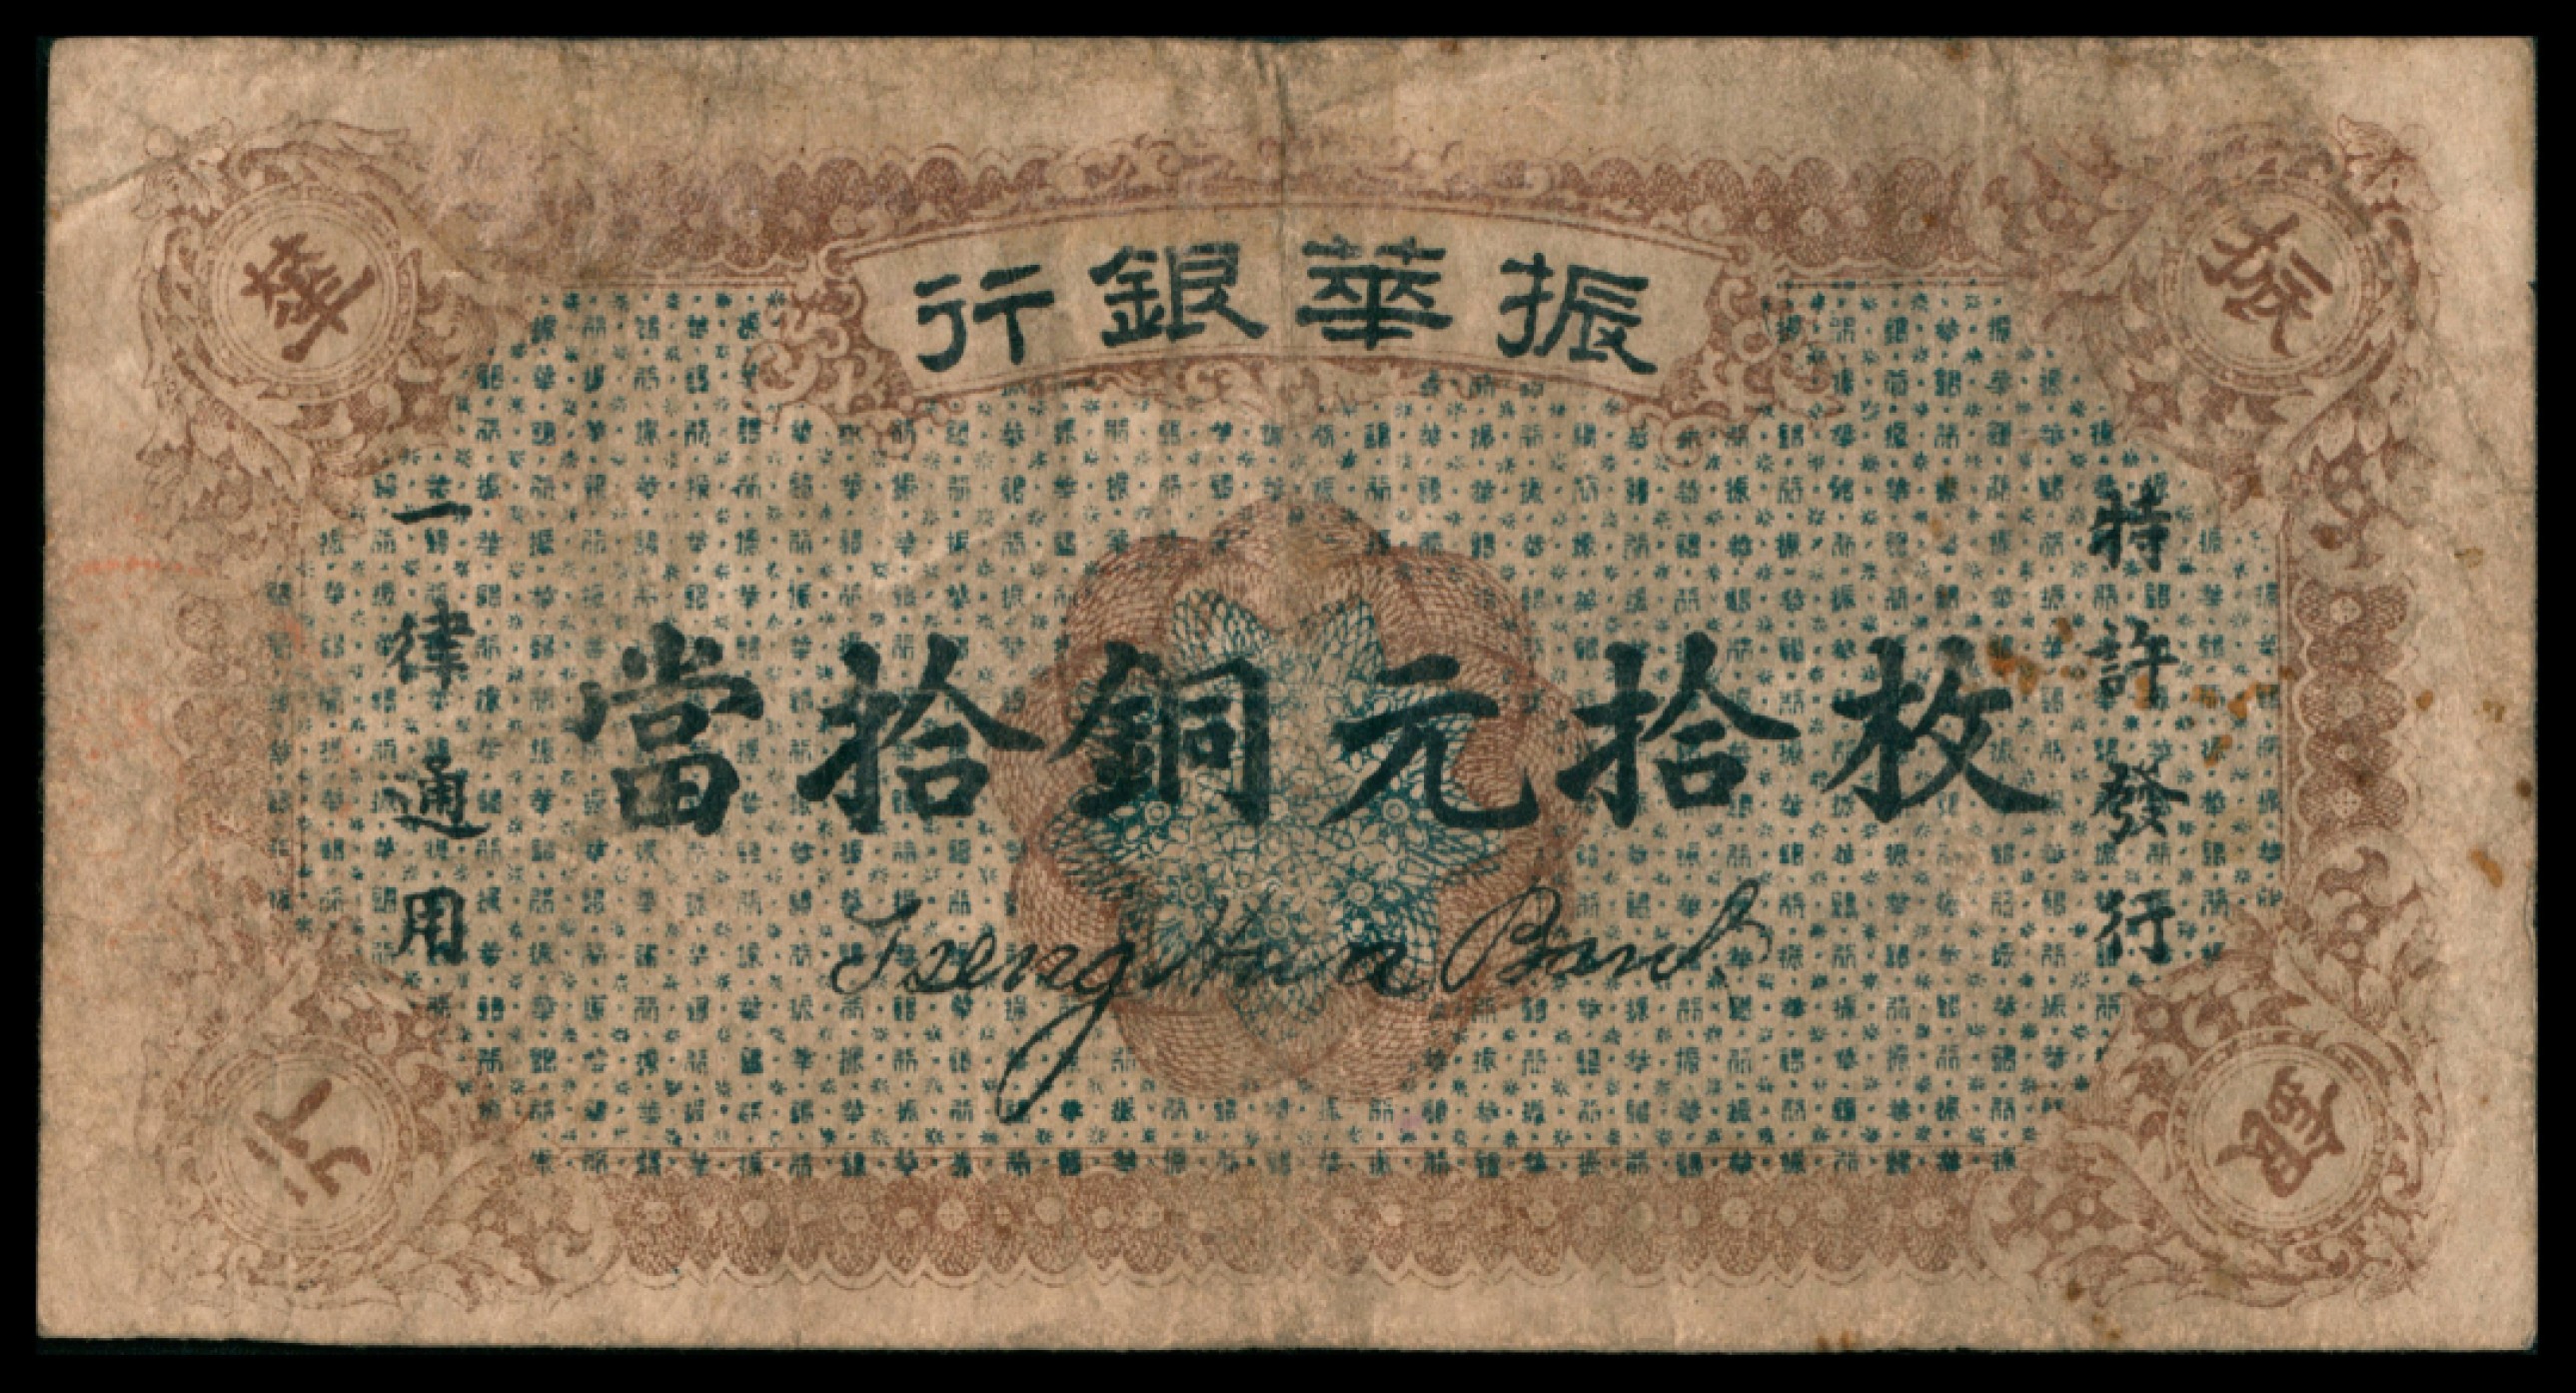 振華銀行
振
華
銀
行
特許發行
當拾銅元拾枚
一律通用
Tseng Hua Bank